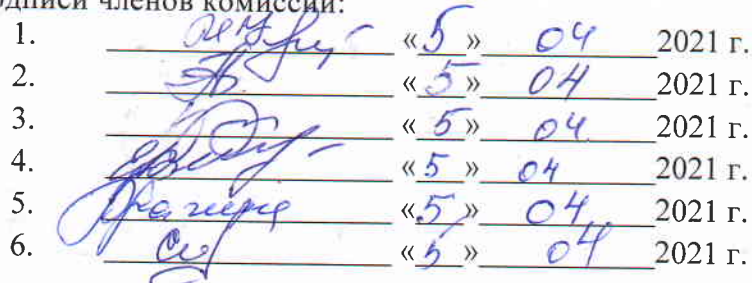 одписи членов комиссии:
1. «5» 04 2021 г.
2. «5» 04 2021 г.
3. «5» 04 2021 г.
4. «5» 04 2021 г.
5. «5» 04 2021 г.
6. «5» 04 2021 г.